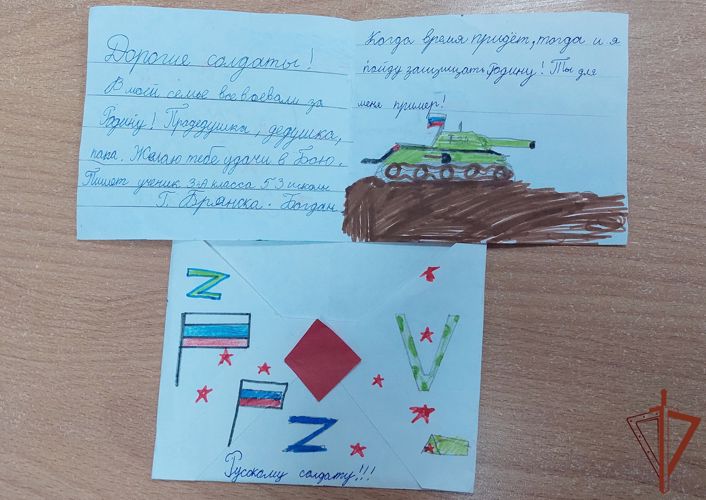 Дорогие солдаты!
В моей семье все воевали за
Родину! Прадедушка, дедушка,
папа. Желаю тебе удачи в Бою.
Пишет ученик 3-А класса 53 школы
Г. Брянска. Богдан
Когда время придёт, тогда и я
пойду защищать Родину! Ты для
меня пример!
Z
V
Z
Русскому солдату!!!